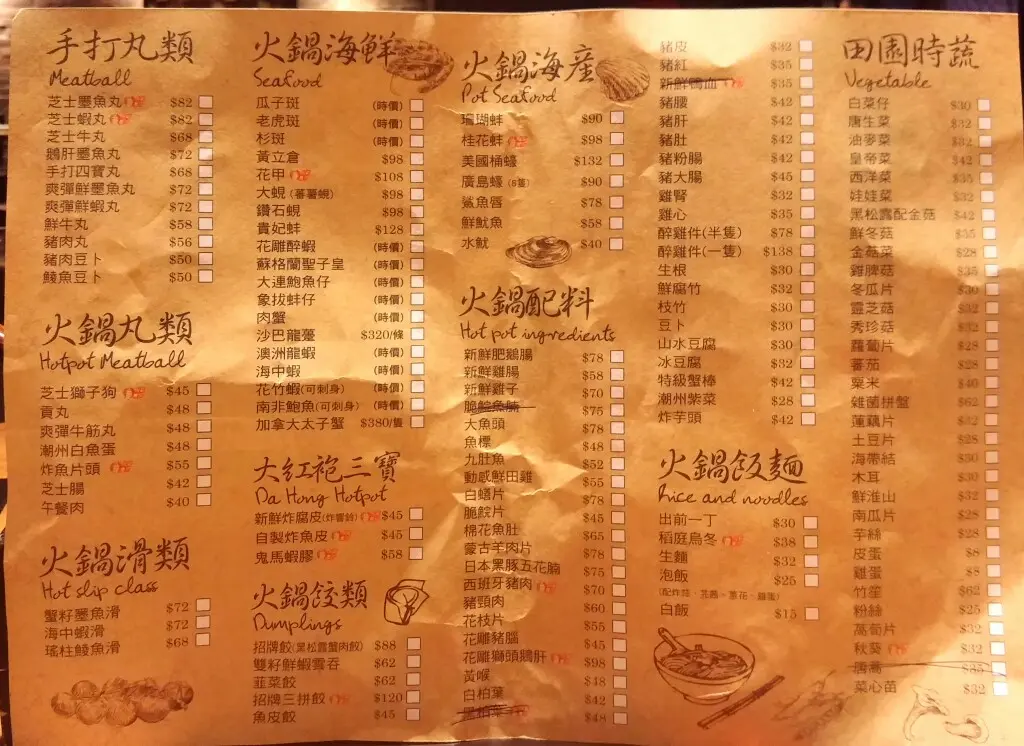 手打丸類
Meatball
芝士墨魚丸 $82
芝士蝦丸 $82
芝士牛丸 $68
鵝肝墨魚丸 $72
手打四寶丸 $68
爽彈鮮墨魚丸 $72
爽彈鮮蝦丸 $72
鮮牛丸 $58
豬肉丸 $56
豬肉豆卜 $50
鯪魚豆卜 $50
火鍋丸類
Hotpot Meatball
芝士獅子狗 $45
貢丸 $48
爽彈牛筋丸 $48
潮州白魚蛋 $48
炸魚片頭 $55
芝士腸 $42
午餐肉 $40
火鍋滑類
Hot slip class
蟹籽墨魚滑 $72
海中蝦滑 $72
瑤柱鯪魚滑 $68
火鍋海鮮
Seafood
瓜子斑 (時價)
老虎斑 (時價)
杉斑 (時價)
黃立倉 $98
花甲 $108
大蜆 (蕃薯蜆) $98
鑽石蜆 $98
貴妃蚌 $128
花雕醉蝦 (時價)
蘇格蘭聖子皇 (時價)
大連鮑魚仔 (時價)
象拔蚌仔 (時價)
肉蟹 (時價)
沙巴龍躉 $320/條
澳洲龍蝦 (時價)
海中蝦 (時價)
花竹蝦(可刺身) (時價)
南非鮑魚(可刺身) (時價)
加拿大太子蟹 $380/隻
大红袍三寶
Da Hong Hotpot
新鮮炸腐皮(炸響鈴) $45
自製炸魚皮 $45
鬼馬蝦膠 $58
火鍋餃類
Dumplings
招牌餃(黑松露蟹肉餃) $88
雙籽鮮蝦雲吞 $62
韮菜餃 $62
招牌三拼餃 $120
魚皮餃 $45
火鍋海産
Pot Seafood
珊瑚蚌 $90
桂花蚌 $98
美國桶蠔 $132
廣島蠔 (8隻) $90
鯊魚唇 $78
鮮魷魚 $58
水魷 $40
火鍋配料
Hot pot ingredients
新鮮肥鵝腸 $78
新鮮雞腸 $58
新鮮雞子 $70
脆鯇魚腩 $75
大魚頭 $78
魚標 $48
九肚魚 $52
動感鮮田雞 $55
白鱔片 $78
脆鯇片 $45
棉花魚肚 $65
蒙古羊肉片 $78
日本黑豚五花腩 $75
西班牙豬肉 $70
豬頸肉 $60
花枝片 $55
花雕豬腦 $45
花雕獅頭鵝肝 $98
黃喉 $48
白柏葉 $42
黑柏葉 $48
豬皮 $32
豬紅 $35
新鮮鴨血 $35
豬腰 $42
豬肝 $42
豬肚 $42
豬粉腸 $42
豬大腸 $45
雞腎 $32
雞心 $35
醉雞件(半隻) $78
醉雞件(一隻) $138
生根 $30
鮮腐竹 $32
枝竹 $30
豆卜 $30
山水豆腐 $30
冰豆腐 $32
特級蟹棒 $42
潮州紫菜 $28
炸芋頭 $42
火鍋飯麵
Rice and noodles
出前一丁 $30
稻庭烏冬 $38
生麵 $32
泡飯 $25
白飯 $15
田園時蔬
Vegetable
白菜仔 $30
唐生菜 $32
油麥菜 $32
皇帝菜 $42
西洋菜 $35
娃娃菜 $32
黑松露配金菇 $42
鮮冬菇 $35
金菇菜 $28
雞脾菇 $35
冬瓜片 $30
靈芝菇 $32
秀珍菇 $32
蘿蔔片 $28
蕃茄 $28
粟米 $40
雜菌拼盤 $62
蓮藕片 $32
土豆片 $28
海帶結 $30
木耳 $30
鮮淮山 $32
南瓜片 $28
芋絲 $28
皮蛋 $8
雞蛋 $8
竹笙 $62
粉絲 $25
萵筍片 $32
秋葵 $32
唐蒿 $35
菜心苗 $32